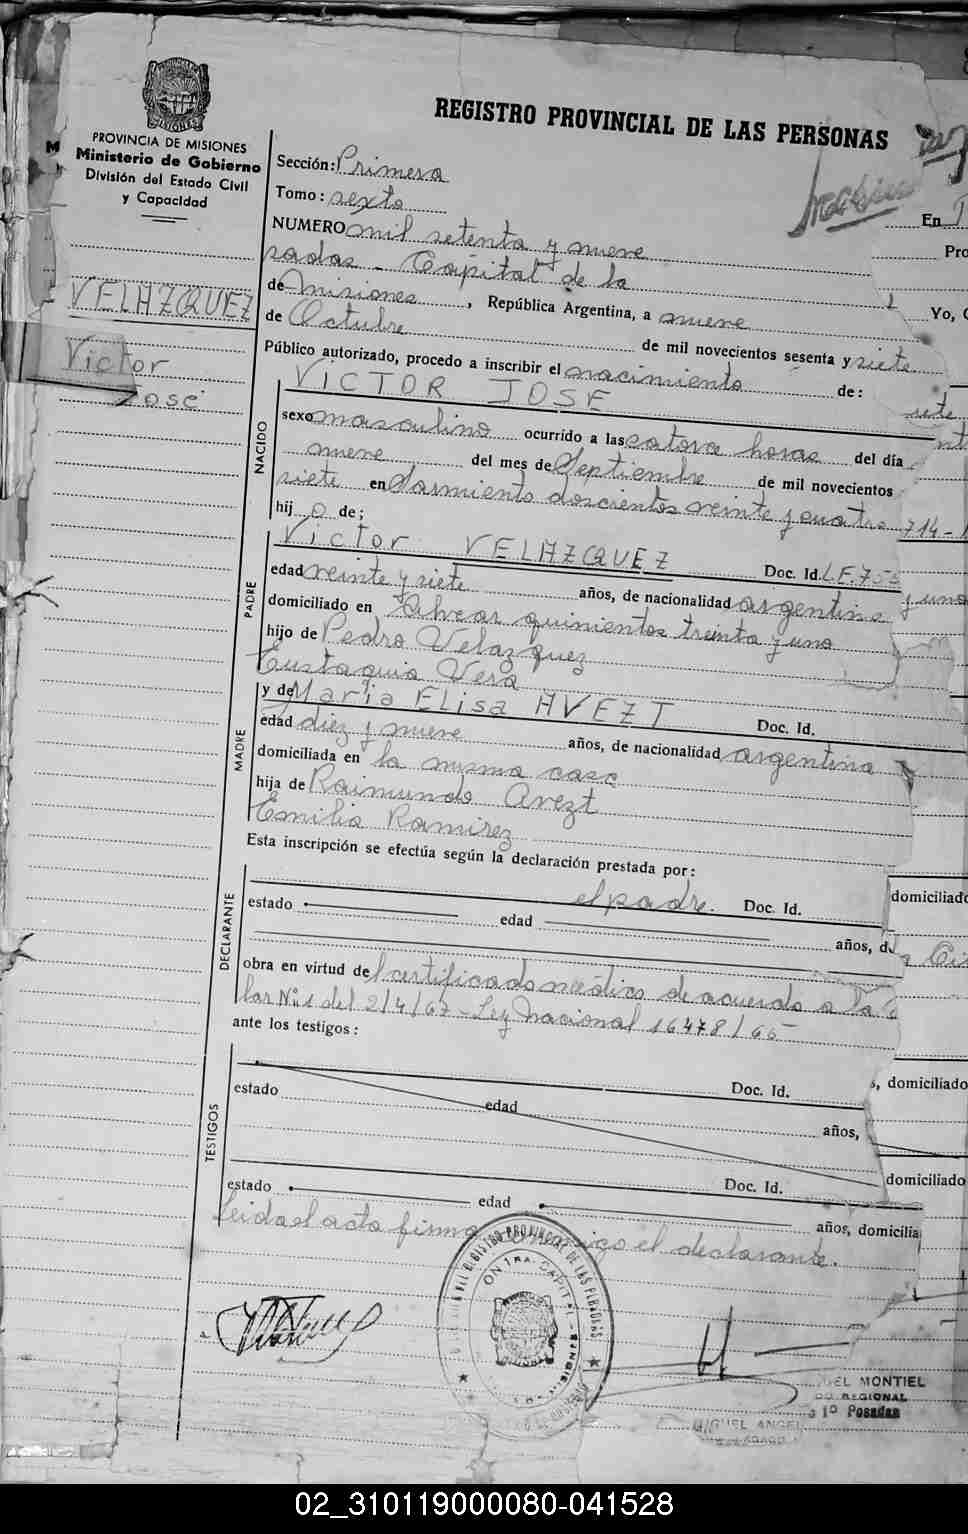 PROVINCIA DE MISIONES
Ministerio de Gobierno
División del Estado Civil
y Capacidad
REGISTRO PROVINCIAL DE LAS PERSONAS
Sección: Primera
Tomo: sexto
En
NUMERO mil setenta y nueve
Pro
sadas - Capital de la
de Misiones, República Argentina, a nueve
Yo,
VELAZQUEZ
de Octubre de mil novecientos sesenta y siete
Victor
José
Público autorizado, procedo a inscribir el nacimiento de:
NACIDO
VICTOR JOSE
sexo masculino ocurrido a las catorce horas del día
nueve del mes de Septiembre de mil novecientos
siete en Sarmiento doscientos veinte y cuatro 714-
hij o de;
PADRE
Victor VELAZQUEZ Doc. Id. L.E. 753
edad veinte y siete años, de nacionalidad argentina y uno
domiciliado en Alvear quinientos treinta y uno
hijo de Pedro Velazquez
Eustaquia Vera
MADRE
y de Maria Elisa AVEZT Doc. Id.
edad diez y nueve años, de nacionalidad argentina
domiciliada en la misma casa
hija de Raimundo Avezt
Emilia Ramirez
Esta inscripción se efectúa según la declaración prestada por:
DECLARANTE
el padre. Doc. Id. domiciliado
estado edad años, d
obra en virtud del certificado médico de acuerdo a la
lar Nº 1 del 2/4/67 - Ley Nacional 16478/65
ante los testigos:
TESTIGOS
Doc. Id. , domiciliado
estado edad años,
Doc. Id. domiciliado
estado edad años, domicilia
Leida el acta firma el declarante.
REGISTRO PROVINCIAL DE LAS PERSONAS
EL MONTIEL
REGIONAL
1º Posadas
MIGUEL ANGEL
02_310119000080-041528